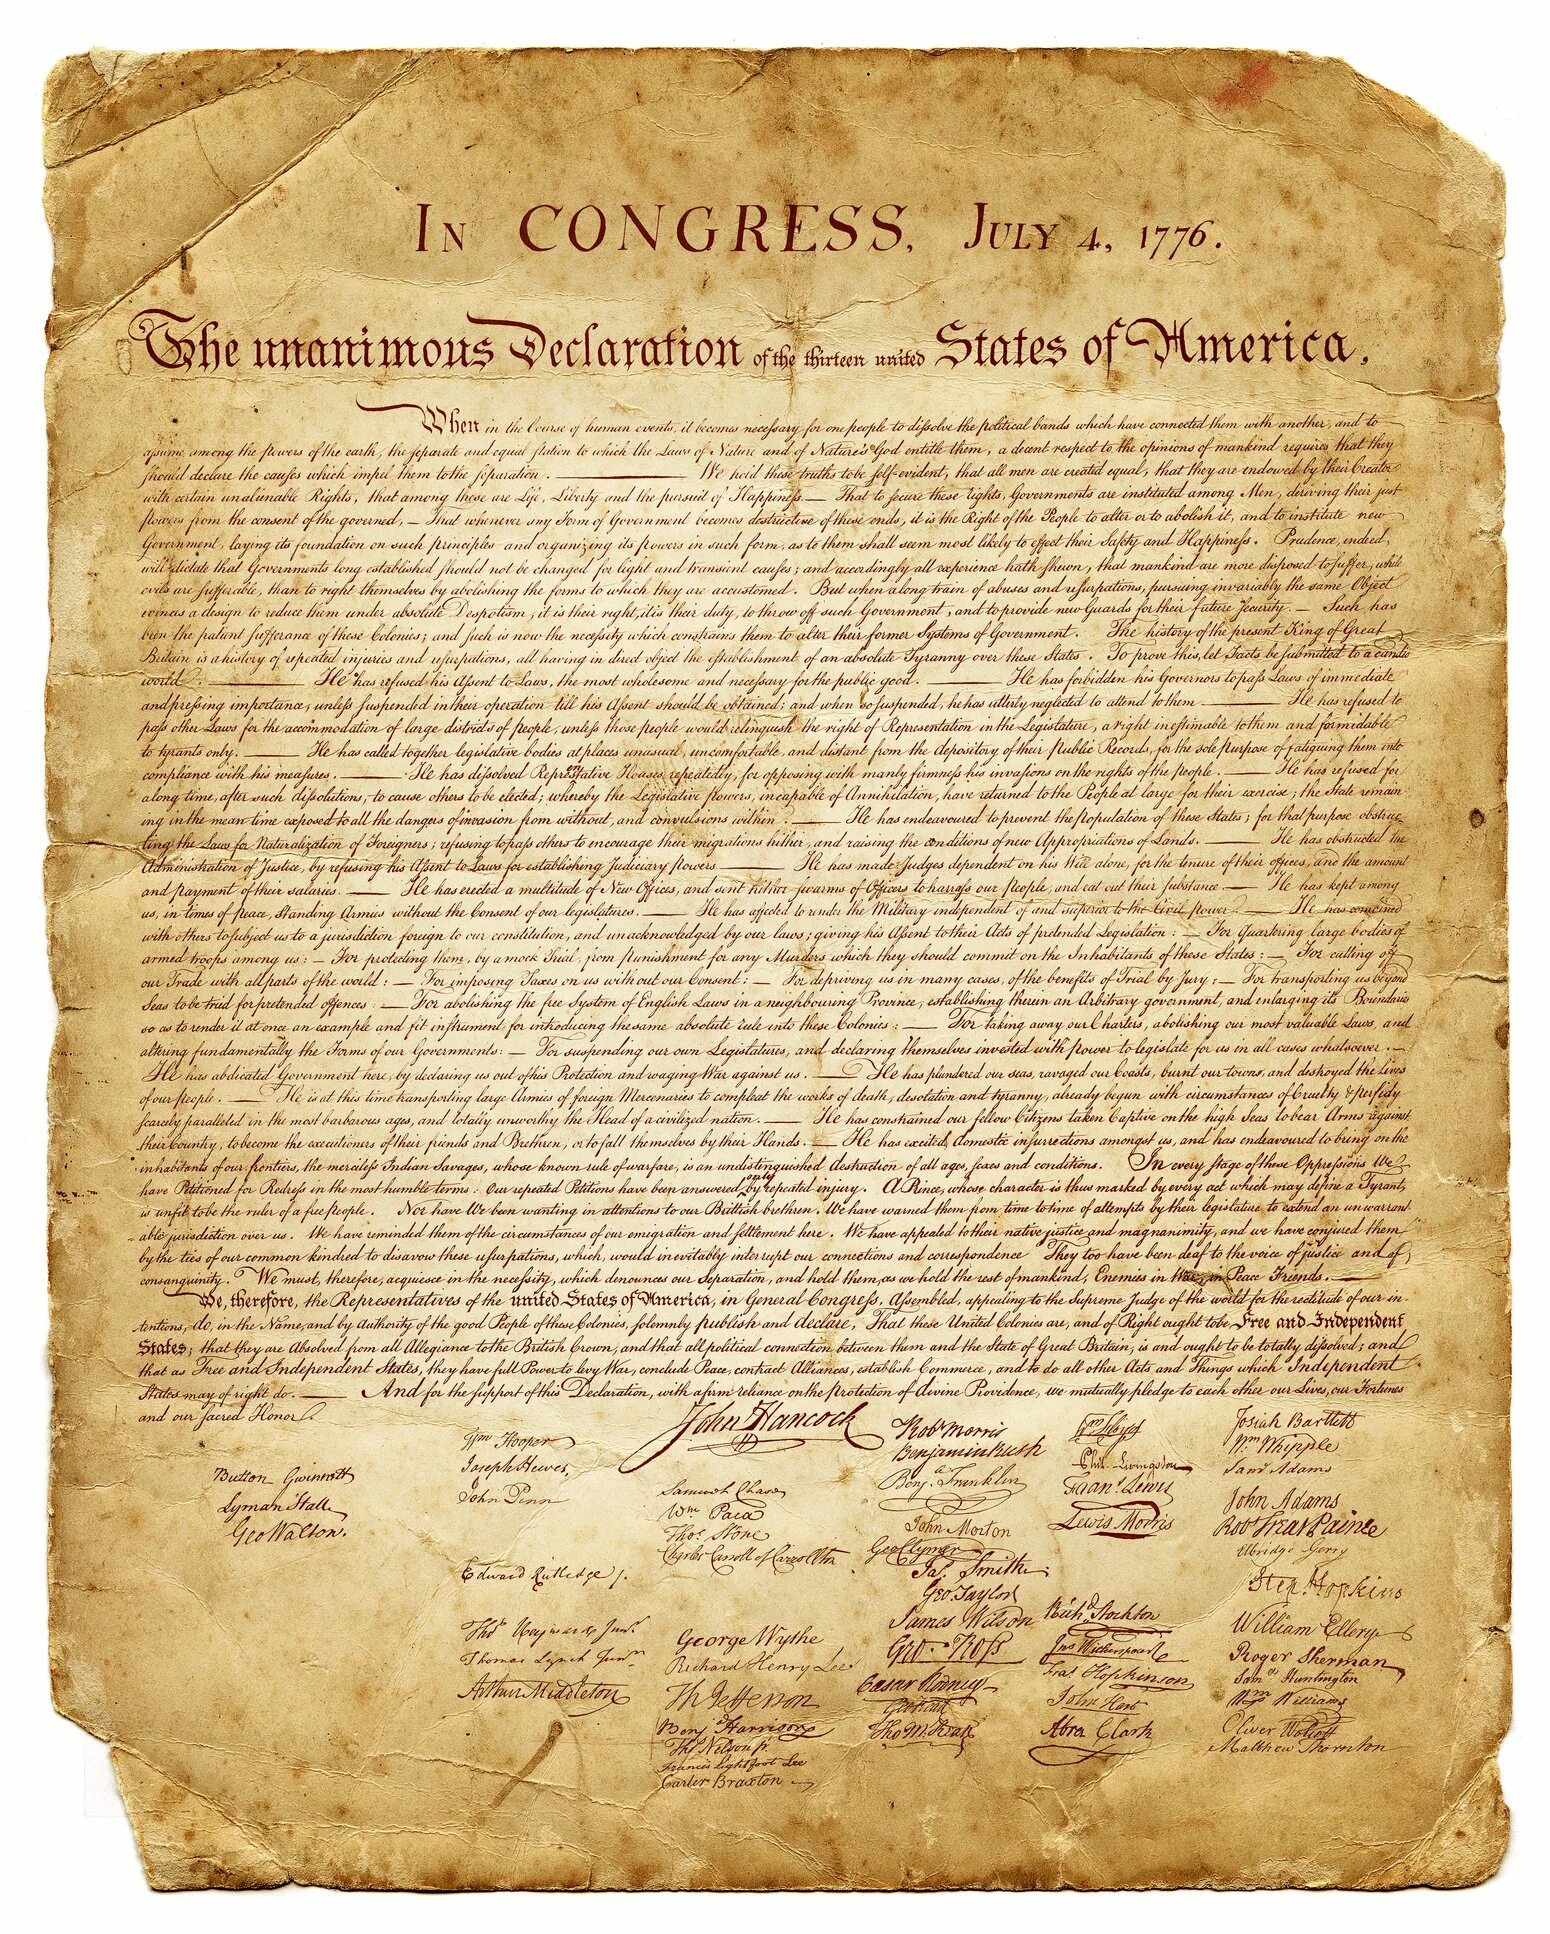 In CONGRESS, July 4, 1776.
The unanimous Declaration of the thirteen united States of America,
When in the Course of human events, it becomes necessary for one people to dissolve the political bands which have connected them with another, and to
assume among the powers of the earth, the separate and equal station to which the Laws of Nature and of Nature's God entitle them, a decent respect to the opinions of mankind requires that they
should declare the causes which impel them to the separation. — We hold these truths to be self-evident, that all men are created equal, that they are endowed by their Creator
with certain unalienable Rights, that among these are Life, Liberty and the pursuit of Happiness.— That to secure these rights, Governments are instituted among Men, deriving their just
powers from the consent of the governed, — That whenever any Form of Government becomes destructive of these ends, it is the Right of the People to alter or to abolish it, and to institute new
Government, laying its foundation on such principles and organizing its powers in such form, as to them shall seem most likely to effect their Safety and Happiness. Prudence, indeed,
will dictate that Governments long established should not be changed for light and transient causes; and accordingly all experience hath shewn, that mankind are more disposed to suffer, while
evils are sufferable, than to right themselves by abolishing the forms to which they are accustomed. But when a long train of abuses and usurpations, pursuing invariably the same Object
evinces a design to reduce them under absolute Despotism, it is their right, it is their duty, to throw off such Government, and to provide new Guards for their future security. — Such has
been the patient sufferance of these Colonies; and such is now the necessity which constrains them to alter their former Systems of Government. The history of the present King of Great
Britain is a history of repeated injuries and usurpations, all having in direct object the establishment of an absolute Tyranny over these States. To prove this, let Facts be submitted to a candid
world. — He has refused his Assent to Laws, the most wholesome and necessary for the public good. — He has forbidden his Governors to pass Laws of immediate
and pressing importance, unless suspended in their operation till his Assent should be obtained; and when so suspended, he has utterly neglected to attend to them. — He has refused to
pass other Laws for the accommodation of large districts of people, unless those people would relinquish the right of Representation in the Legislature, a right inestimable to them and formidable
to tyrants only. — He has called together legislative bodies at places unusual, uncomfortable, and distant from the depository of their public Records, for the sole purpose of fatiguing them into
compliance with his measures. — He has dissolved Representative Houses repeatedly, for opposing with manly firmness his invasions on the rights of the people. — He has refused for
a long time, after such dissolutions, to cause others to be elected; whereby the Legislative powers, incapable of Annihilation, have returned to the People at large for their exercise; the State remain
ing in the mean time exposed to all the dangers of invasion from without, and convulsions within. — He has endeavoured to prevent the population of these States; for that purpose obstruc
ting the Laws for Naturalization of Foreigners; refusing to pass others to encourage their migrations hither, and raising the conditions of new Appropriations of Lands. — He has obstructed the
Administration of Justice, by refusing his Assent to Laws for establishing Judiciary powers — He has made Judges dependent on his Will alone, for the tenure of their offices, and the amount
and payment of their salaries. — He has erected a multitude of New Offices, and sent hither swarms of Officers to harrass our people, and eat out their substance. — He has kept among
us, in times of peace, Standing Armies without the Consent of our legislatures. — He has affected to render the Military independent of and superior to the Civil power. — He has combined
with others to subject us to a jurisdiction foreign to our constitution, and unacknowledged by our laws; giving his Assent to their Acts of pretended Legislation: — For Quartering large bodies of
armed troops among us: — For protecting them, by a mock Trial, from punishment for any Murders which they should commit on the Inhabitants of these States: — For cutting off
our Trade with all parts of the world: — For imposing Taxes on us without our Consent: — For depriving us in many cases, of the benefits of Trial by Jury: — For transporting us beyond
Seas to be tried for pretended offences — For abolishing the free System of English Laws in a neighbouring Province, establishing therein an Arbitrary government, and enlarging its Boundaries
so as to render it at once an example and fit instrument for introducing the same absolute rule into these Colonies: — For taking away our Charters, abolishing our most valuable Laws, and
altering fundamentally the Forms of our Governments: — For suspending our own Legislatures, and declaring themselves invested with power to legislate for us in all cases whatsoever. —
He has abdicated Government here, by declaring us out of his Protection and waging War against us. — He has plundered our seas, ravaged our Coasts, burnt our towns, and destroyed the lives
of our people. — He is at this time transporting large Armies of foreign Mercenaries to compleat the works of death, desolation and tyranny, already begun with circumstances of Cruelty & perfidy
scarcely paralleled in the most barbarous ages, and totally unworthy the Head of a civilized nation. — He has constrained our fellow Citizens taken Captive on the high Seas to bear Arms against
their Country, to become the executioners of their friends and Brethren, or to fall themselves by their Hands. — He has excited domestic insurrections amongst us, and has endeavoured to bring on the
inhabitants of our frontiers, the merciless Indian Savages, whose known rule of warfare, is an undistinguished destruction of all ages, sexes and conditions. In every stage of these Oppressions We
have Petitioned for Redress in the most humble terms: Our repeated Petitions have been answered only by repeated injury. A Prince, whose character is thus marked by every act which may define a Tyrant,
is unfit to be the ruler of a free people. Nor have We been wanting in attentions to our Brittish brethren. We have warned them from time to time of attempts by their legislature to extend an unwarrant
able jurisdiction over us. We have reminded them of the circumstances of our emigration and settlement here. We have appealed to their native justice and magnanimity, and we have conjured them
by the ties of our common kindred to disavow these usurpations, which, would inevitably interrupt our connections and correspondence They too have been deaf to the voice of justice and of
consanguinity. We must, therefore, acquiesce in the necessity, which denounces our Separation, and hold them, as we hold the rest of mankind, Enemies in War, in Peace Friends. —
We, therefore, the Representatives of the united States of America, in General Congress, Assembled, appealing to the Supreme Judge of the world for the rectitude of our in-
tentions, do, in the Name, and by Authority of the good People of these Colonies, solemnly publish and declare, That these United Colonies are, and of Right ought to be Free and Independent
States; that they are Absolved from all Allegiance to the British Crown, and that all political connection between them and the State of Great Britain, is and ought to be totally dissolved; and
that as Free and Independent States, they have full Power to levy War, conclude Peace, contract Alliances, establish Commerce, and to do all other Acts and Things which Independent
States may of right do. — And for the support of this Declaration, with a firm reliance on the protection of divine Providence, we mutually pledge to each other our Lives, our Fortunes
and our sacred Honor.
Button Gwinnett
Lyman Hall
Geo Walton.
Wm Hooper
Joseph Hewes,
John Penn
Edward Rutledge
Thos Heyward Junr
Thomas Lynch Junr
Arthur Middleton
John Hancock
Samuel Chase
Wm Paca
Thos Stone
Charles Carroll of Carrollton
George Wythe
Richard Henry Lee
Th Jefferson
Benj Harrison
Thos Nelson jr.
Francis Lightfoot Lee
Carter Braxton
Robt Morris
Benjamin Rush
Benja Franklin
John Morton
Geo Clymer
Jas. Smith
Geo. Taylor
James Wilson
Geo. Ross
Caesar Rodney
Geo Read
Tho M:Kean
Wm Floyd
Phil. Livingston
Frans Lewis
Lewis Morris
Richd Stockton
Jno Witherspoon
Fras Hopkinson
John Hart
Abra Clark
Josiah Bartlett
Wm Whipple
Saml Adams
John Adams
Robt Treat Paine
Elbridge Gerry
Step. Hopkins
William Ellery
Roger Sherman
Sam Huntington
Wm Williams
Oliver Wolcott
Matthew Thornton